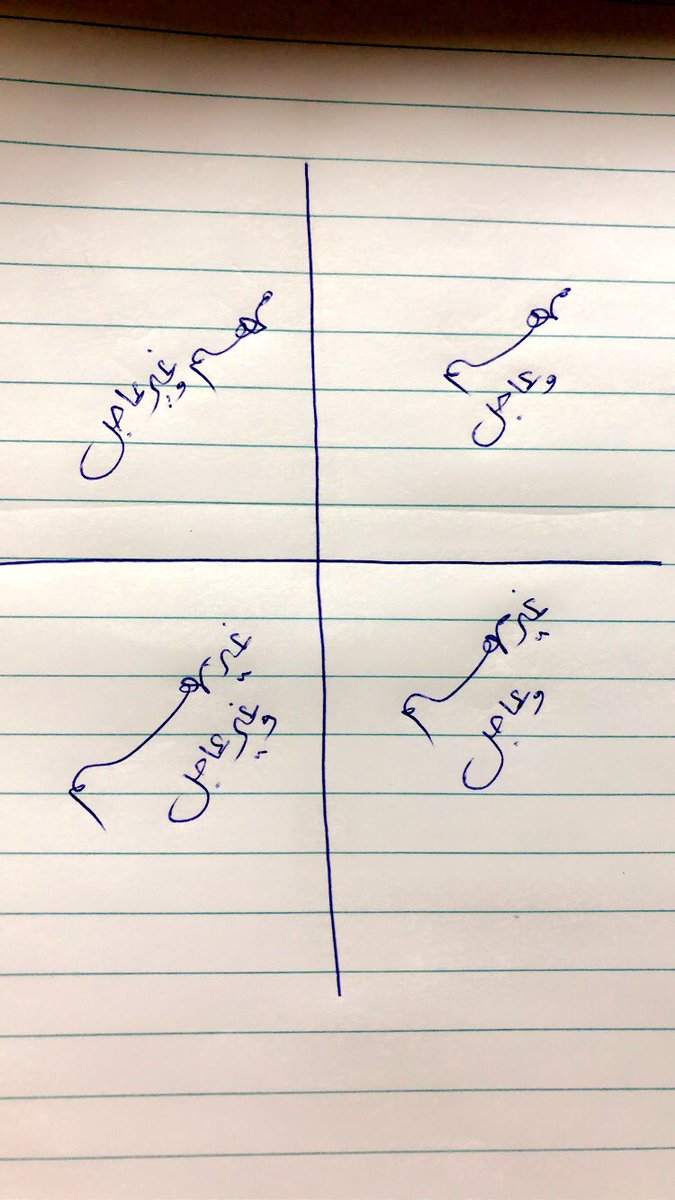 مهم
وعاجل
مهم
وغير عاجل
غير مهم
وعاجل
غير مهم
وغير عاجل